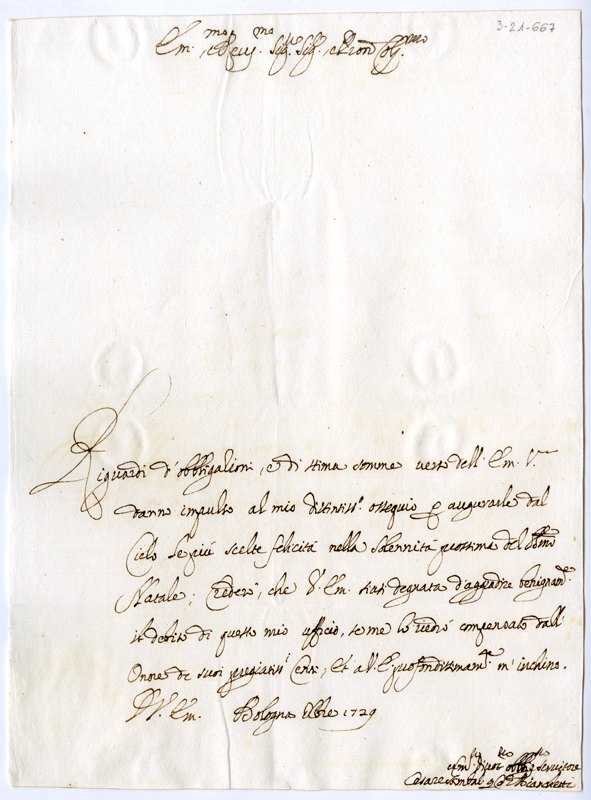 3-21-667
Em.mo e Rev.mo Sig.r Sig.r e Pron Col.mo
Riguardi d'obbligationi, e di stima somma verso dell'Em. V.ra
danno impulso al mio distintiss.o ossequio p augurarle dal
Cielo le più scelte felicità nella solennità prossima del S.mo
Natale; Crederò, che V. Em. siasi degnata d'aggradire benignam.te
il debito di questo mio ufficio, se me lo vedrò compensato dall'
Onore de suoi pregiatiss.i Cenni, Et a V. E. profondissimam.te m'inchino.
D. V. Em. Bologna Xbre 1729
Um.o Divot.o obb.o servitore
Cesare Bianchetti